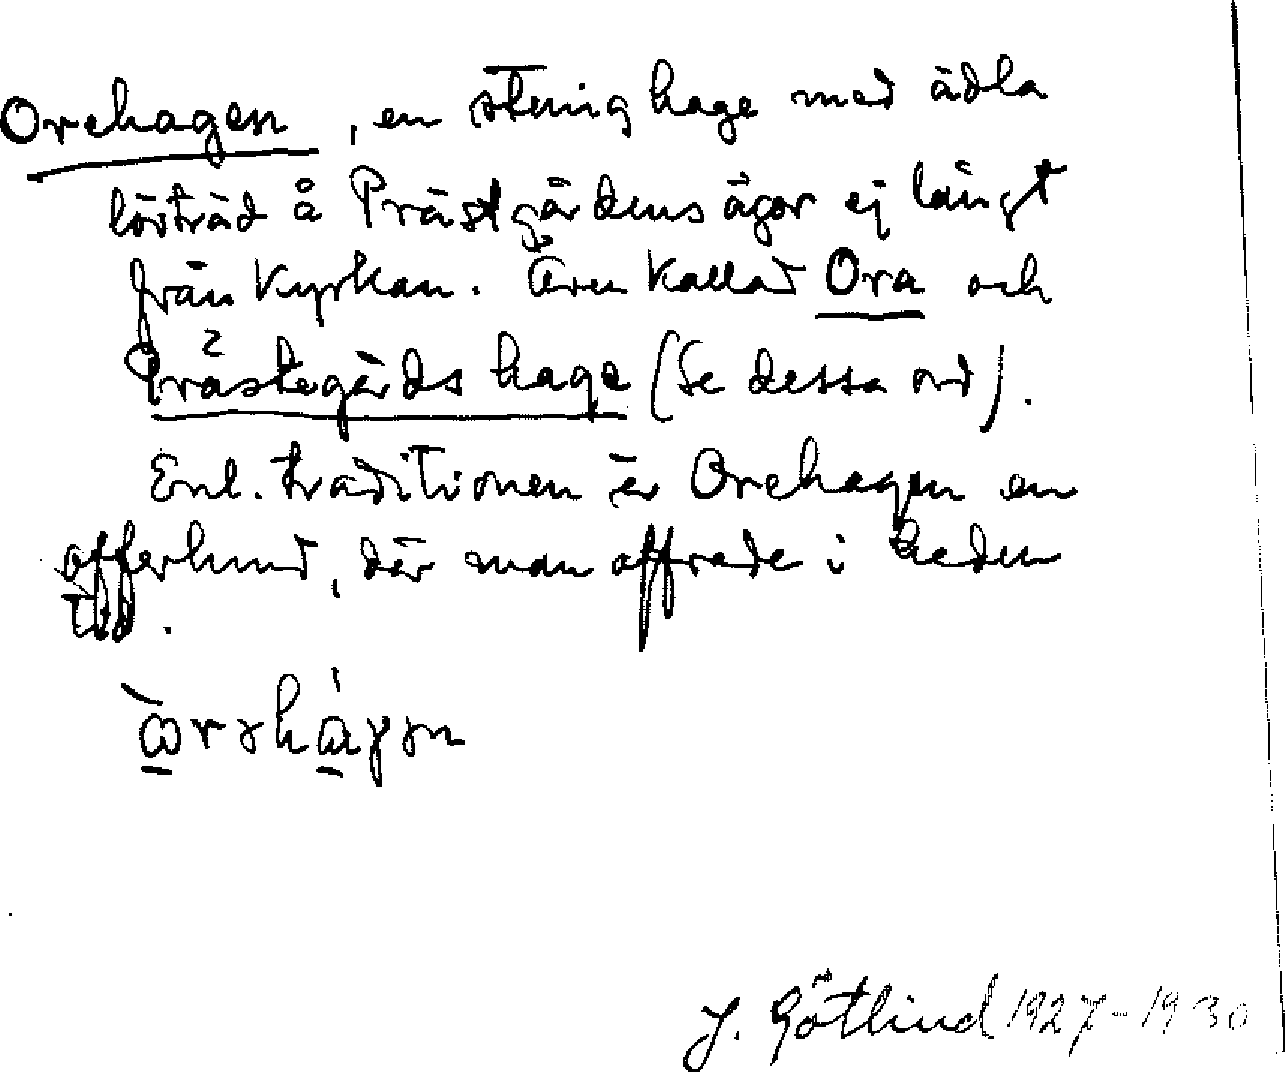 Orehagen, en stenig hage med ädla
lövträd å Prästgårdens ägor ej långt
från Kyrkan. Även kallad Ora och
Prästegårds hage (Se dessa ord).
Enl. traditionen är Orehagen en
offerlund, där man offrade i heden
tid.
J. Götlind 1927-1930